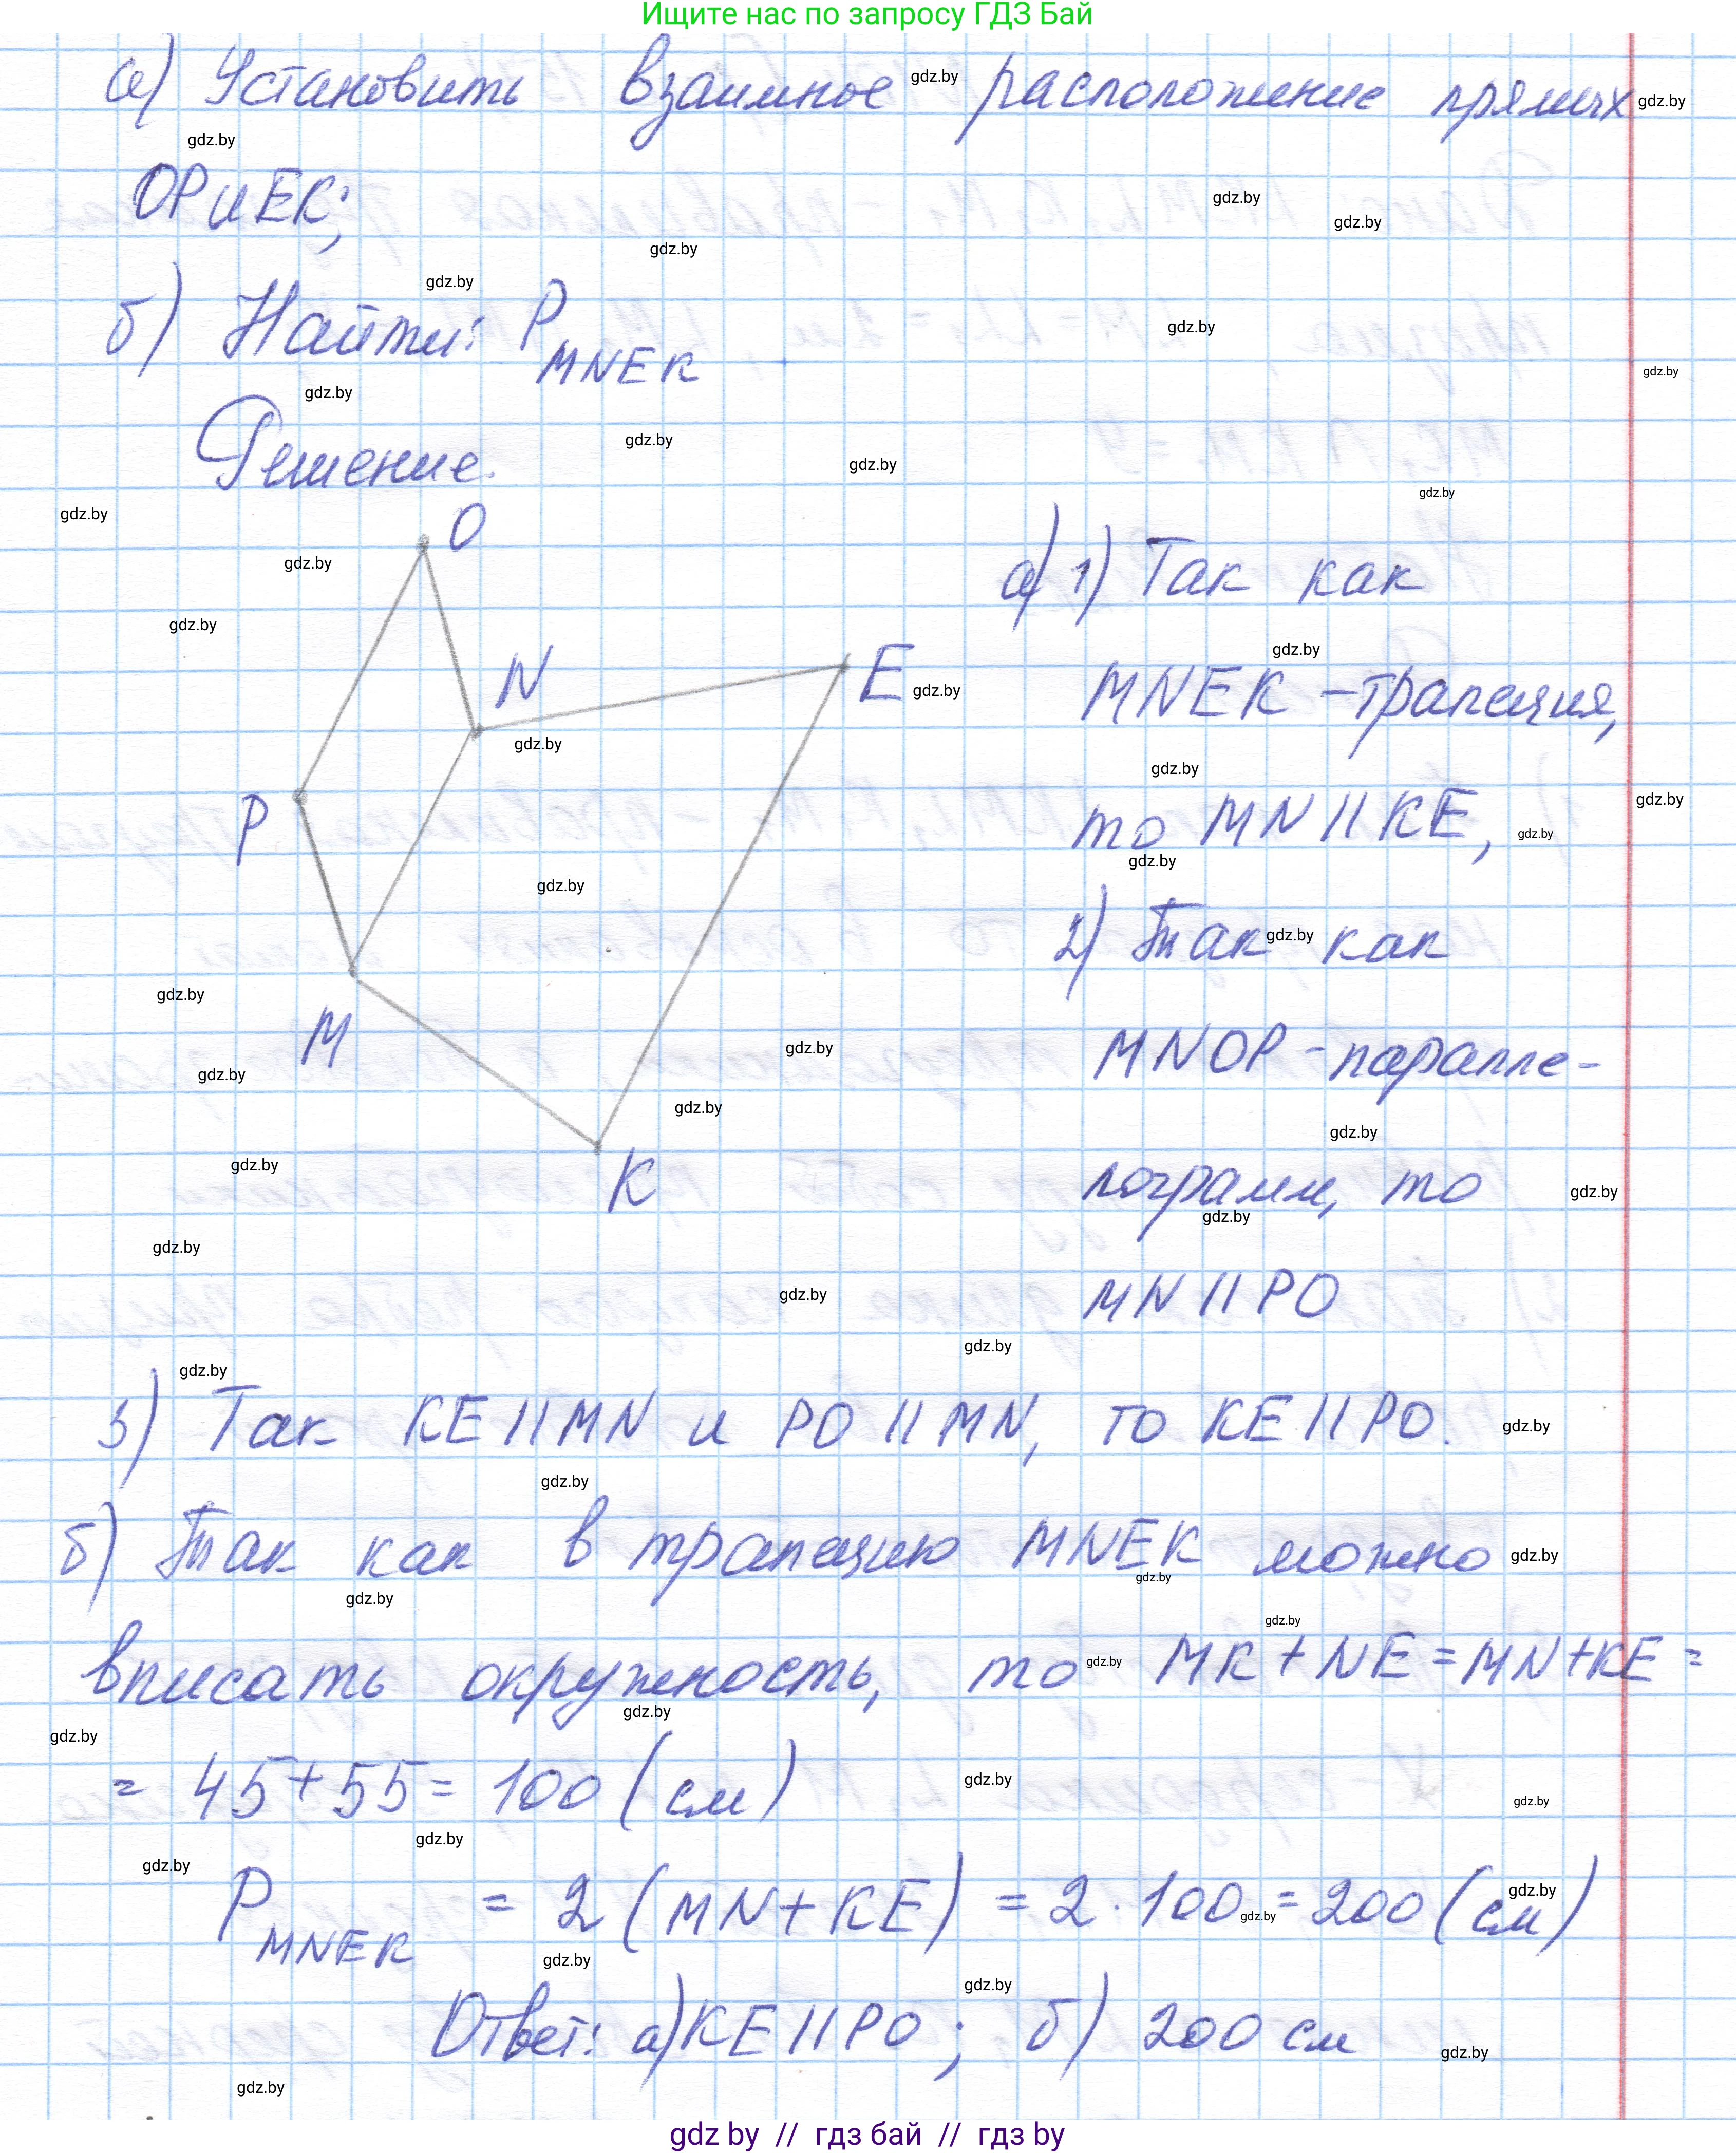 Ищите нас по запросу ГДЗ Бай
а) Установить взаимное расположение прямых
OP и EK;
б) Найти: P MNEK
Решение.
O
N
E
P
M
K
а) 1) Так как
MNEK - трапеция,
то MN || KE,
2) Так как
MNOP - паралле-
лограмм, то
MN || PO
3) Так KE || MN и PO || MN, то KE || PO.
б) Так как в трапецию MNEK можно
вписать окружность, то MK + NE = MN + KE =
= 45 + 55 = 100 (см)
P MNEK = 2 (MN + KE) = 2 · 100 = 200 (см)
Ответ: а) KE || PO; б) 200 см
gdz by // гдз бай // гдз by